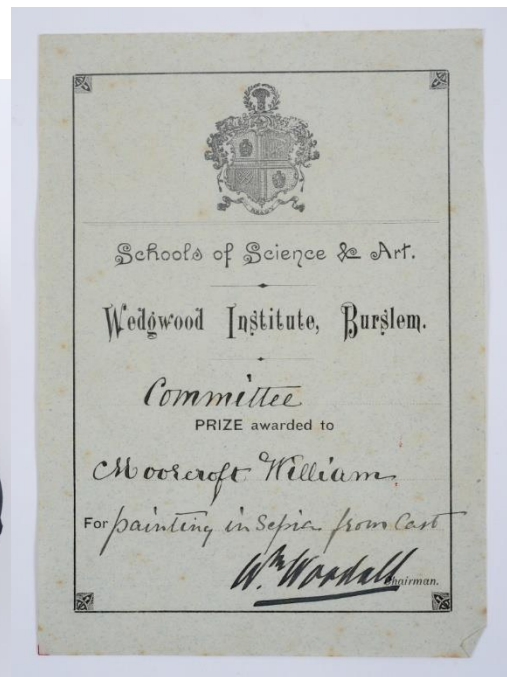 READY
Schools of Science & Art.
Wedgwood Institute, Burslem.
Committee
PRIZE awarded to
Moorcroft William
For painting in Sepia from Cast
Wm Woodall
Chairman.